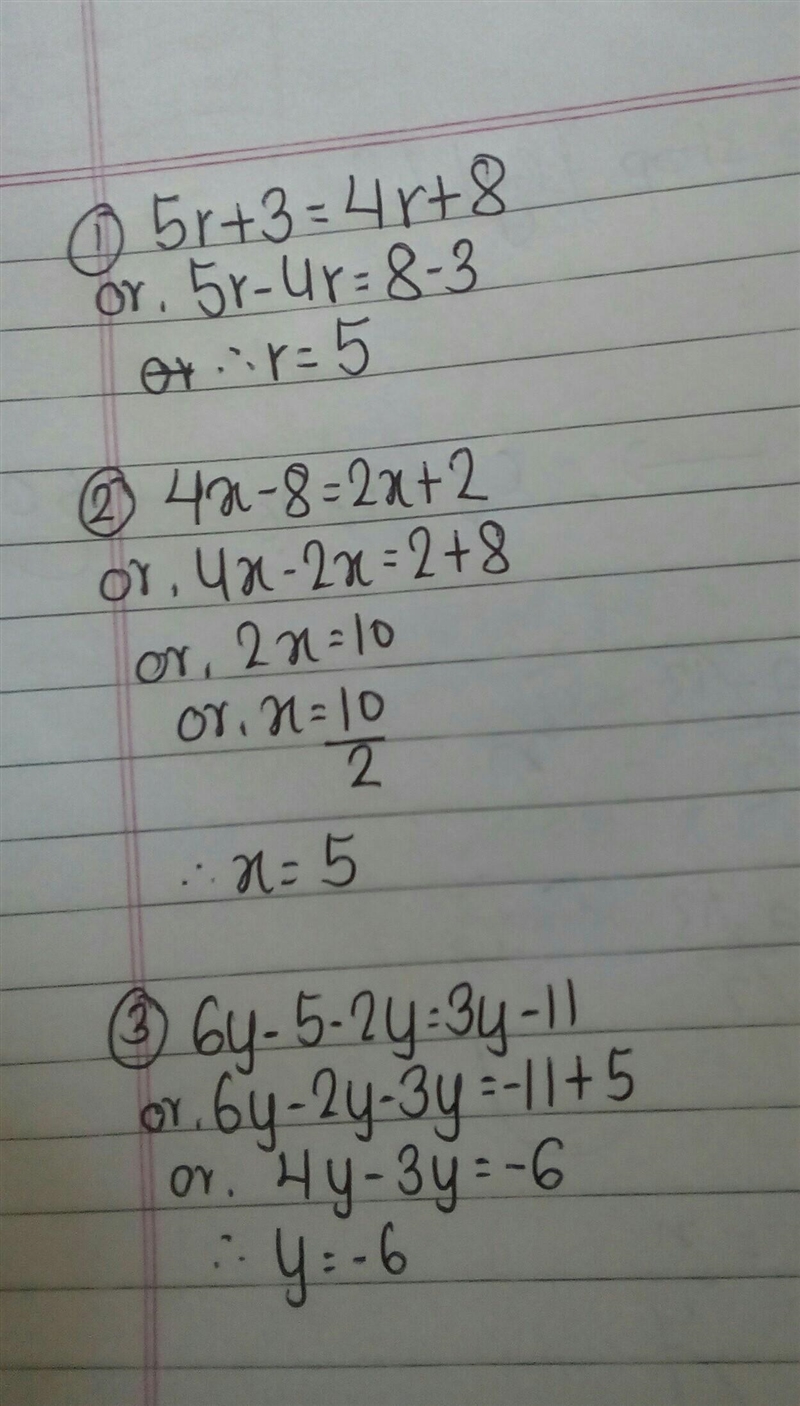 ① 5r+3=4r+8
or. 5r-4r=8-3
∴ r=5
② 4x-8=2x+2
or. 4x-2x=2+8
or. 2x=10
or. x=10/2
∴ x=5
③ 6y-5-2y=3y-11
or. 6y-2y-3y=-11+5
or. 4y-3y=-6
∴ y=-6